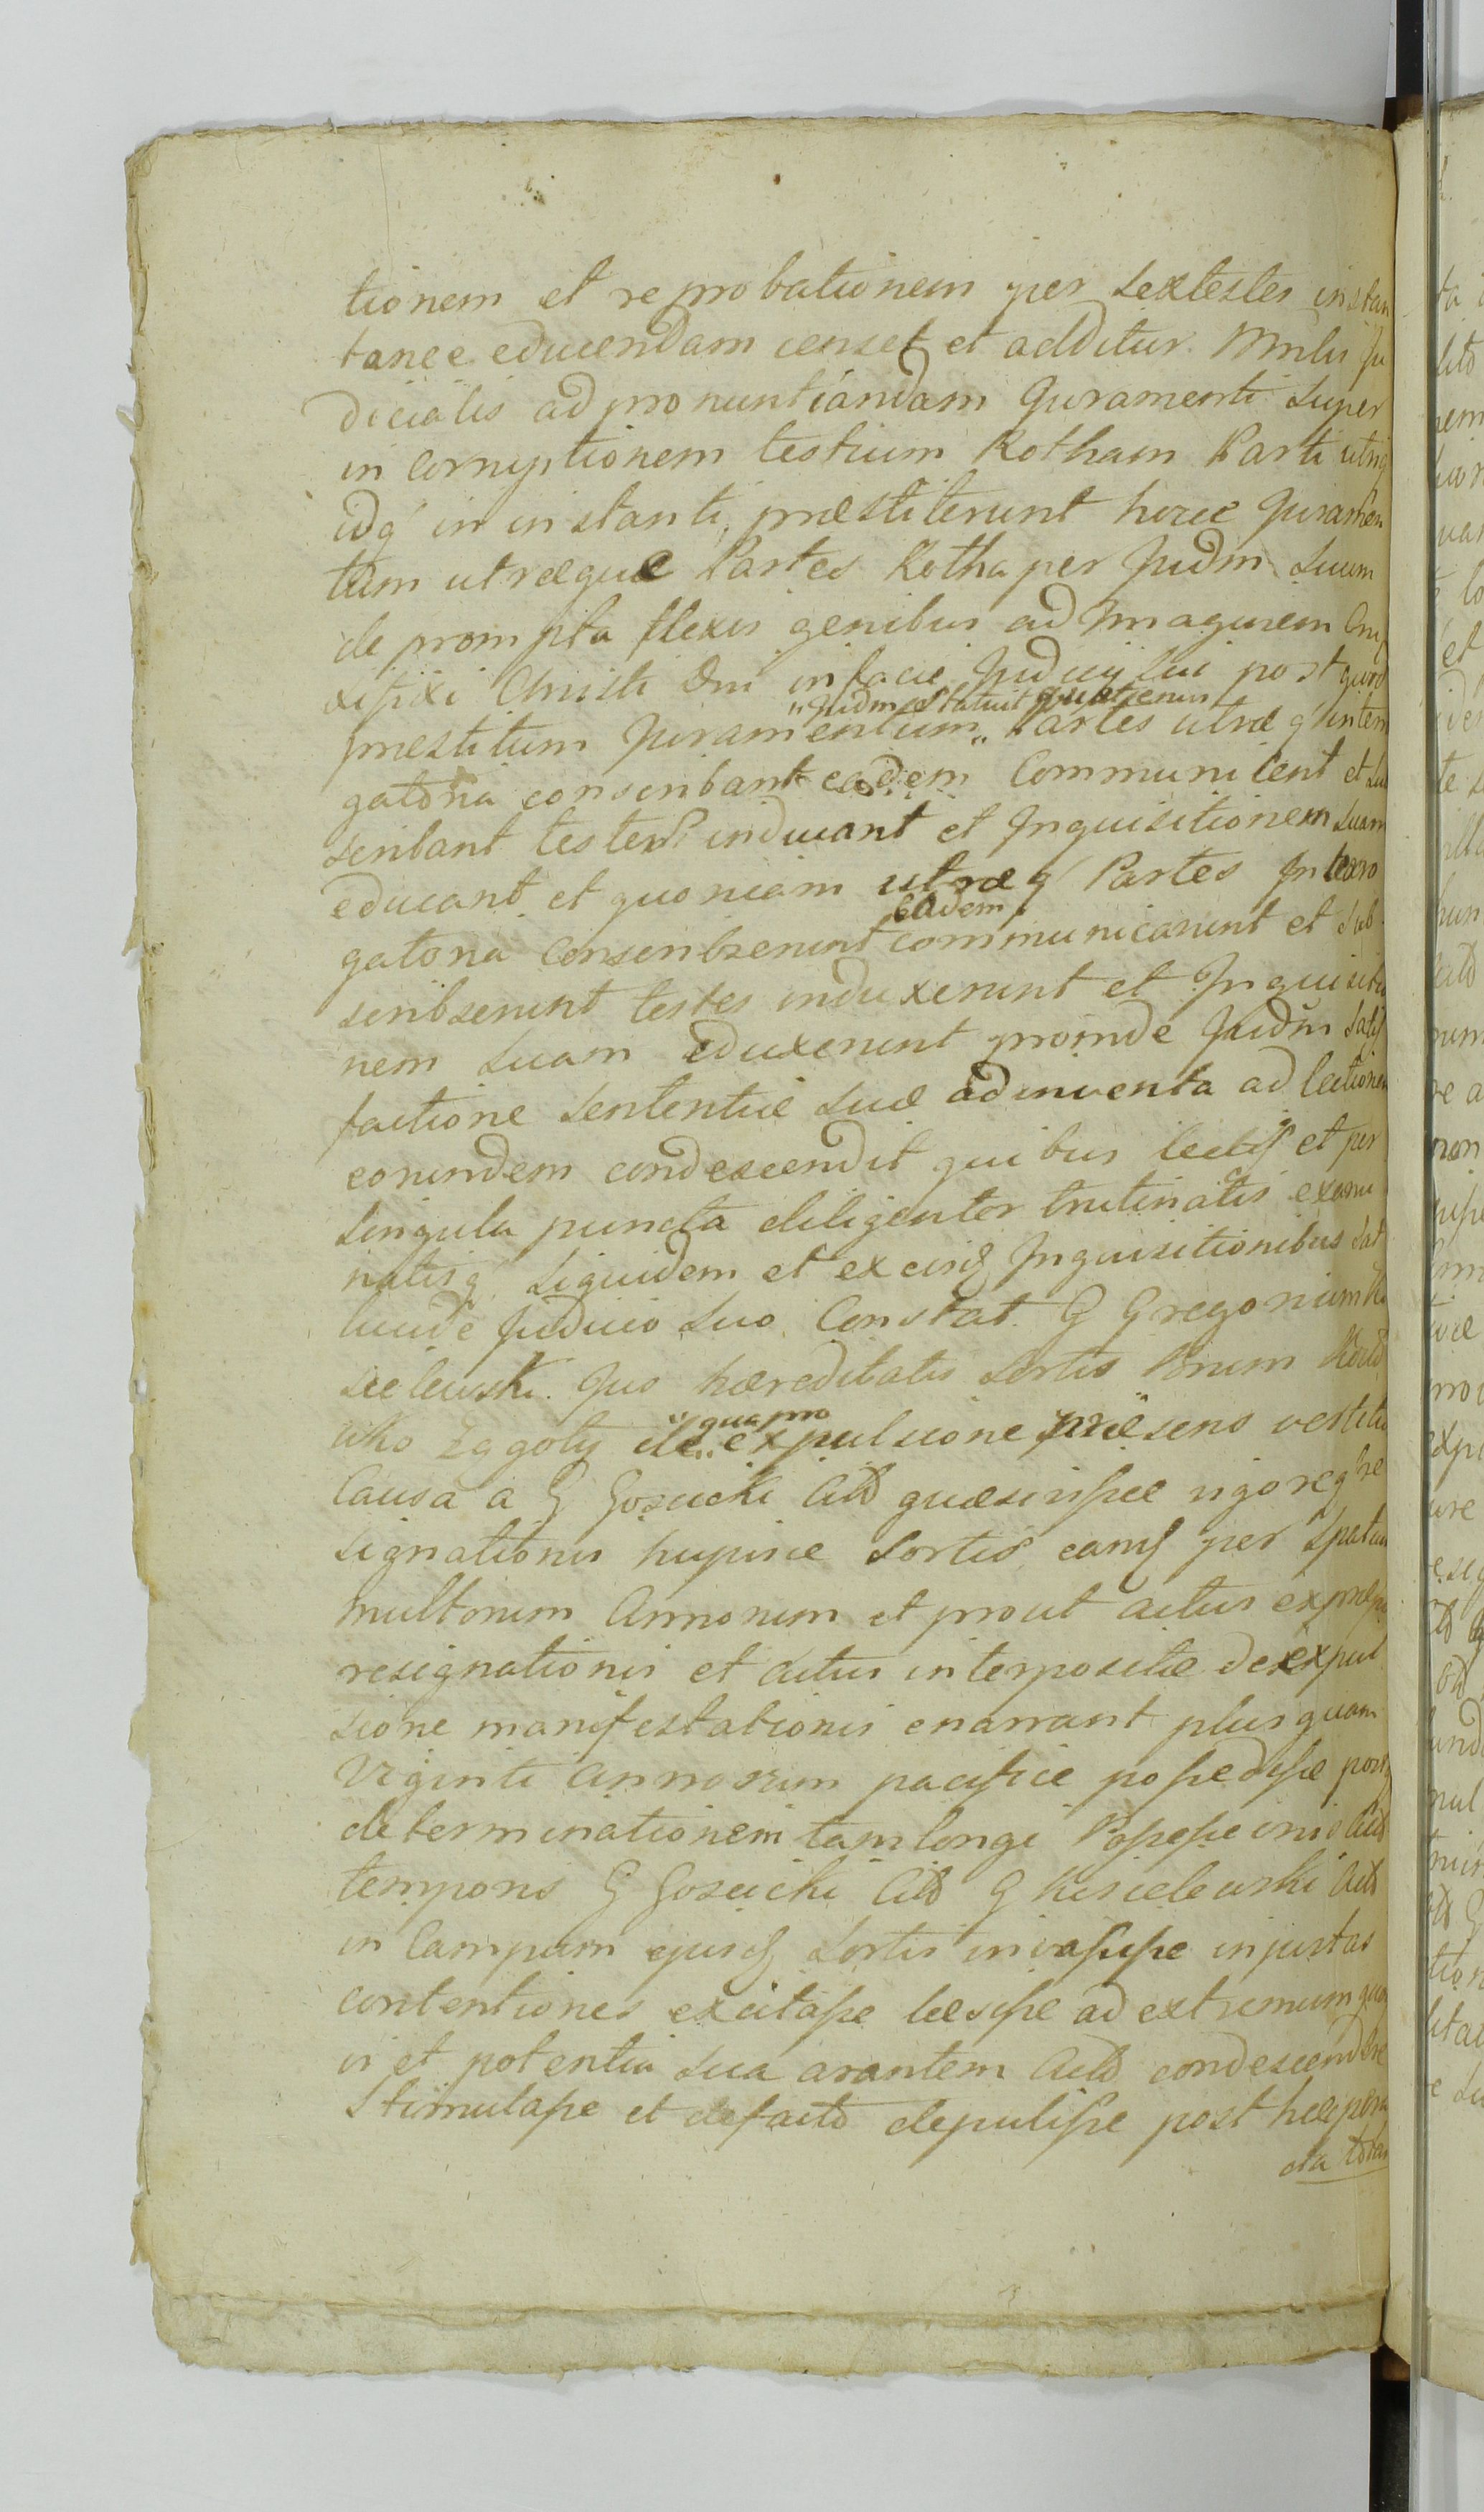 tionem et reprobationem per sextestes instan
tanee educendam censet et additur Mnlis Ju
dicialis ad pronuntiandam Juramenti super
in corruptionem testium Rotham Parti utriq
idq in instanti, præstiterunt hocce Juramen
tum utræque Partes Rotha per Judm suum
de prompta flexis genibus ad Imaginem Cru
xifixi Christi Dni in facie Judicij sui post quod
"Judm statuit quatenus
præstitum Juramentum" Partes utræq inter
gatoria conscribant eadem Communicent et sub
scribant testes inducant et Inquisitionem suam
educant et quoniam utræq Partes Interro
eadem
gatoria conscribserunt communicarunt et sub
scribserunt testes induxerunt et Inquisitio
nem suam eduxerunt proinde Judm satis
factione sententiæ suæ adinventa ad lectionem
eorundem condescendit quibus lectis et per
singula puncta diligenter trutinatis exami
natisq siquidem et ex eisd Inquisitionibus sat
lucide Judicio suo Constat G Gregorium Ki
sielewski Jus hæreditatis sortis Bnrum
Zagoty
"qua pro
de" expulsione præsens vestita
Causa a G Goscicki Actd quæsivisse vigoreq re
signationis hujusce sortis eamq per spatium
multorum Annorum et prout actus expresse
resignationis et actus interpositæ de expul
sione manifestationis enarrant plus quam
Viginti annorum pacifice possedisse post
determinationem tam longi Possessionis
temporis G Goscicki Citd G Kisielewski Actd
in Campum ejusd sortis invasisse injustas
contentiones excitasse læsisse ad extremum qua
vi et potentia sua arantem Actd condescendere
stimulasse et defacto depulisse post hæc pera
cta totam